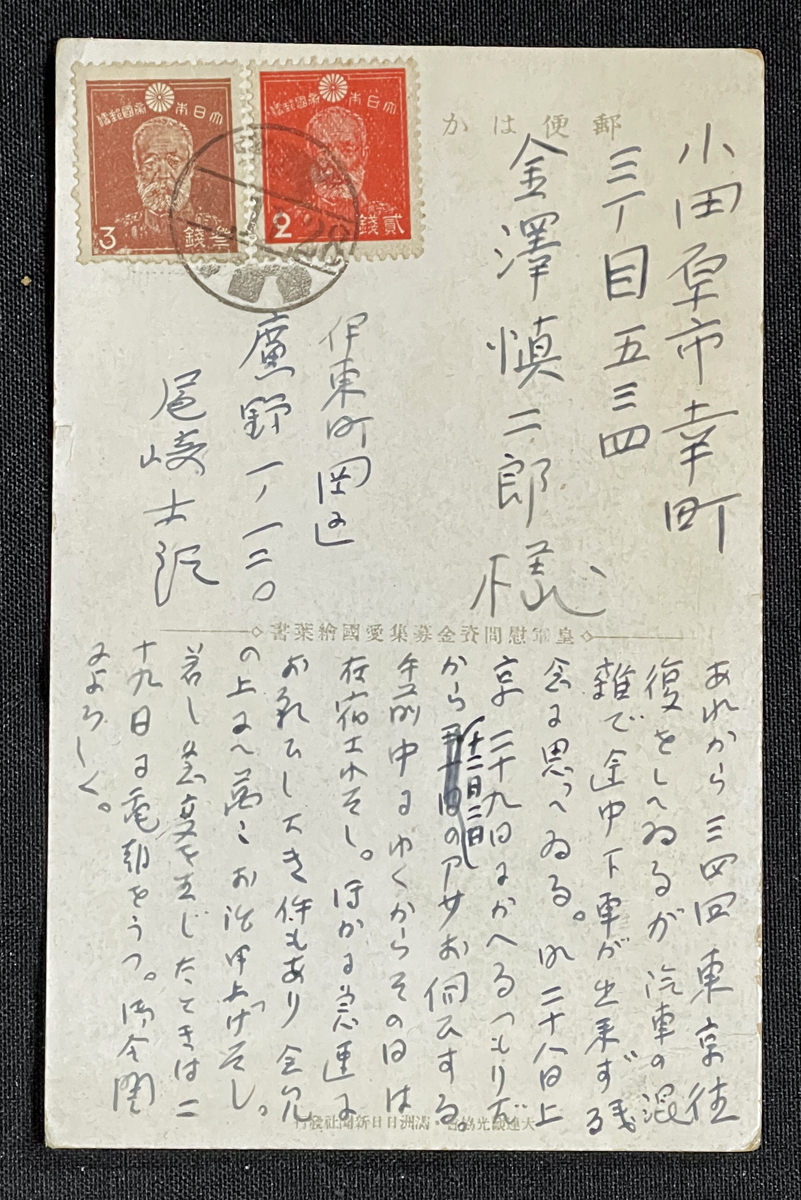 郵便はかき
大日本帝國郵便
3
參錢
大日本帝國郵便
2
貳錢
小田原市幸町
三丁目五三四
金澤慎二郎様
伊東町岡区
廣野一ノ一二〇
尾崎士郎
皇軍慰問資金募集愛國繪葉書
あれから三四回東京往
復をしてゐるが汽車の混
雜で途中下車が出来ず残
念に思ってゐる。二十八日上
京二十九日にかへるつもりだ
から十二月二日のアサお伺ひする。
午前中にゆくからその日は
在宿エかそし。ほかに急速に
お報ひし度き件もあり
の上にて萬々お話申上げ
若し急変を生じたときは二
十九日に電報をうつ。御令閨
によろしく。
大連觀光協會・滿洲日日新聞社發行